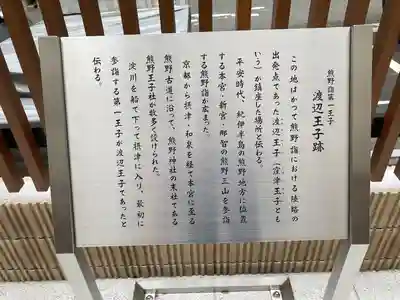 熊野詣第一王子
渡辺王子跡
この地はかつて熊野詣における陸路の
出発点であった渡辺王子（窪津王子とも
いう）が鎮座した場所と伝わる。
平安時代、紀伊半島の熊野地方に位置
する本宮・新宮・那智の熊野三山を参詣
する熊野詣が広まった。
京都から摂津・和泉を経て本宮に至る
熊野古道に沿って、熊野神社の末社である
熊野王子社が数多く設けられた。
淀川を船で下って摂津に入り、最初に
参詣する第一王子が渡辺王子であったと
伝わる。